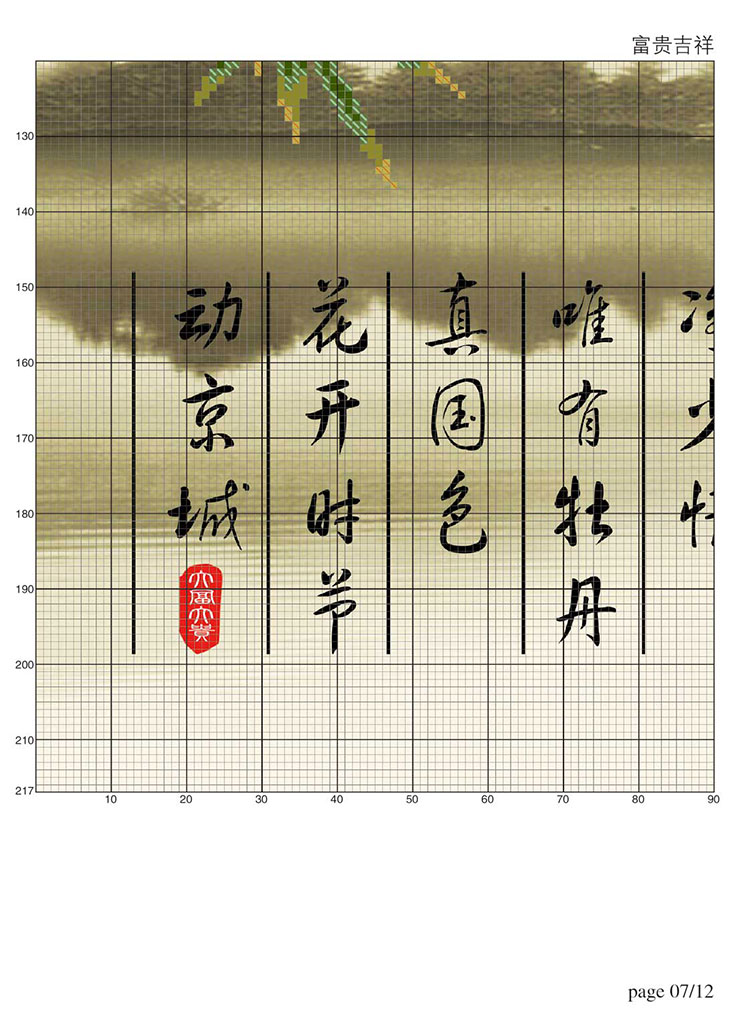 富贵吉祥
唯有牡丹
真国色
花开时节
动京城
大富大貴
130
140
150
160
170
180
190
200
210
217
10 20 30 40 50 60 70 80 90
page 07/12